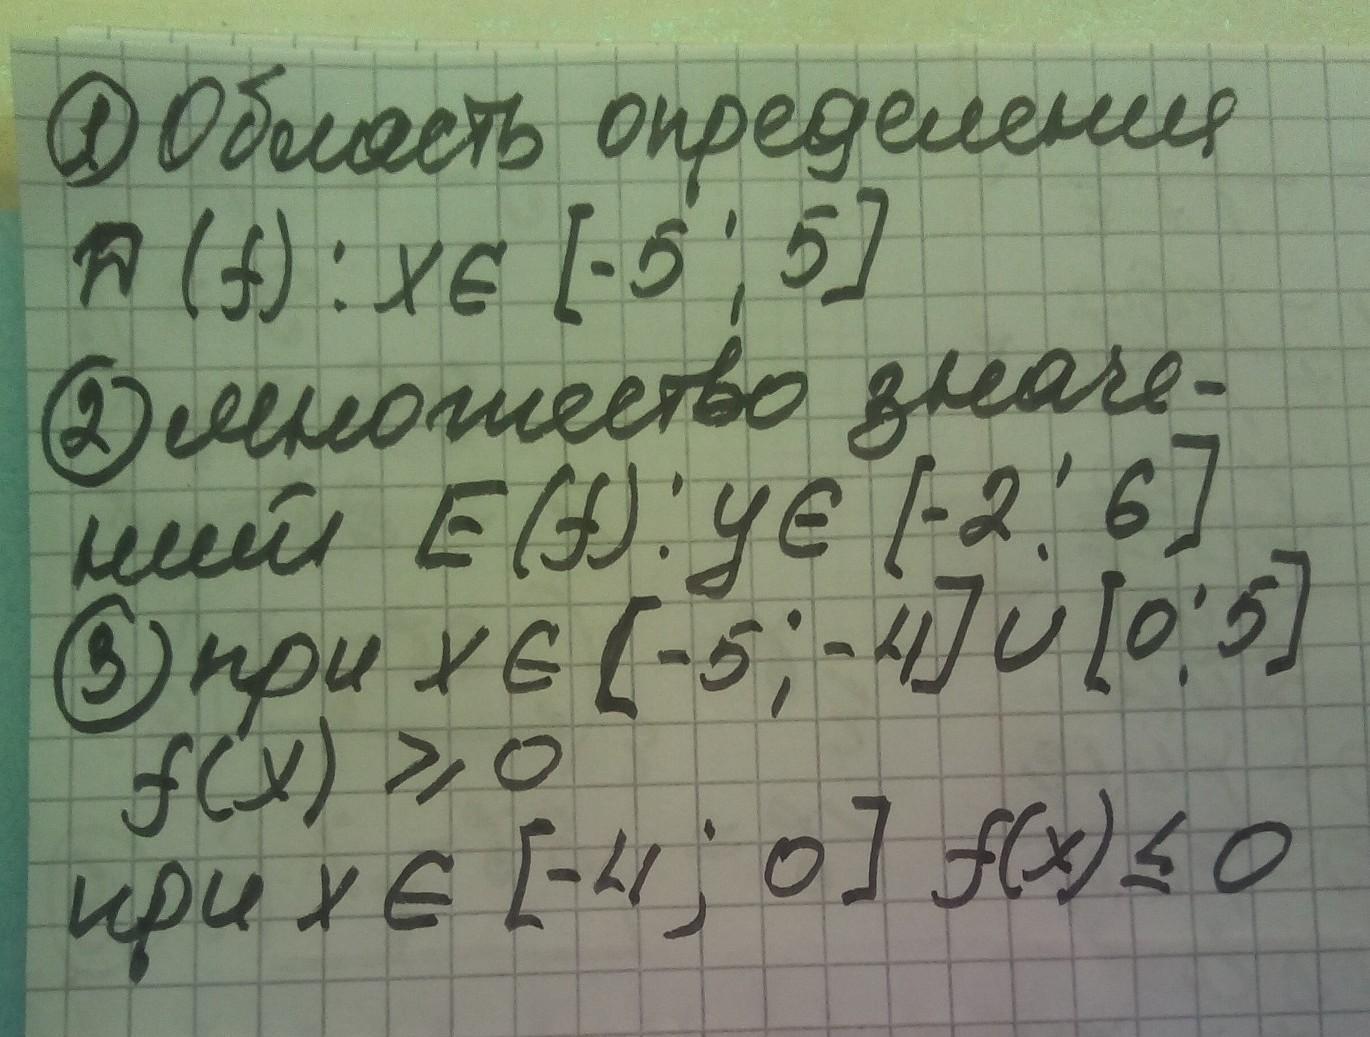 ① Область определения
D (f) : x ∈ [-5 ; 5]
② множество значе-
ний E(f) : y ∈ [-2 ; 6]
③ при x ∈ [-5 ; -4] ∪ [0 ; 5]
f(x) ⩾ 0
при x ∈ [-4 ; 0] f(x) ≤ 0